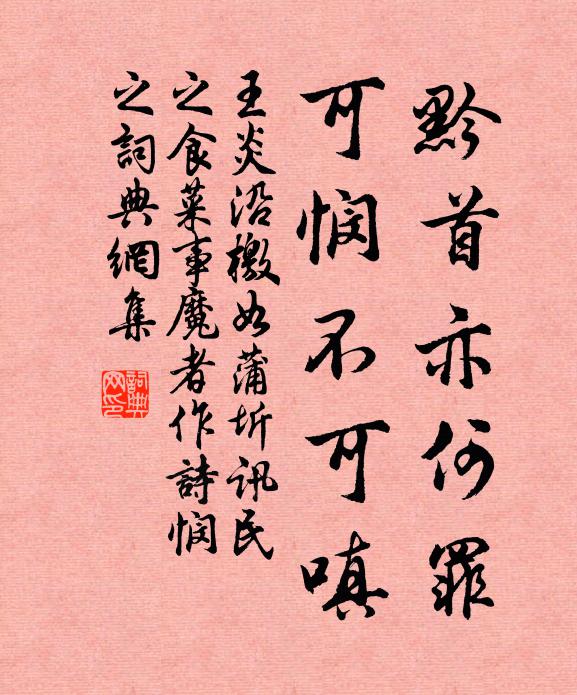 黔首亦何罪
可悯不可嗔
王炎沿檄如蒲圻讯民
之食菜事魔者作詩悯
之詞典網集
詞典
网印